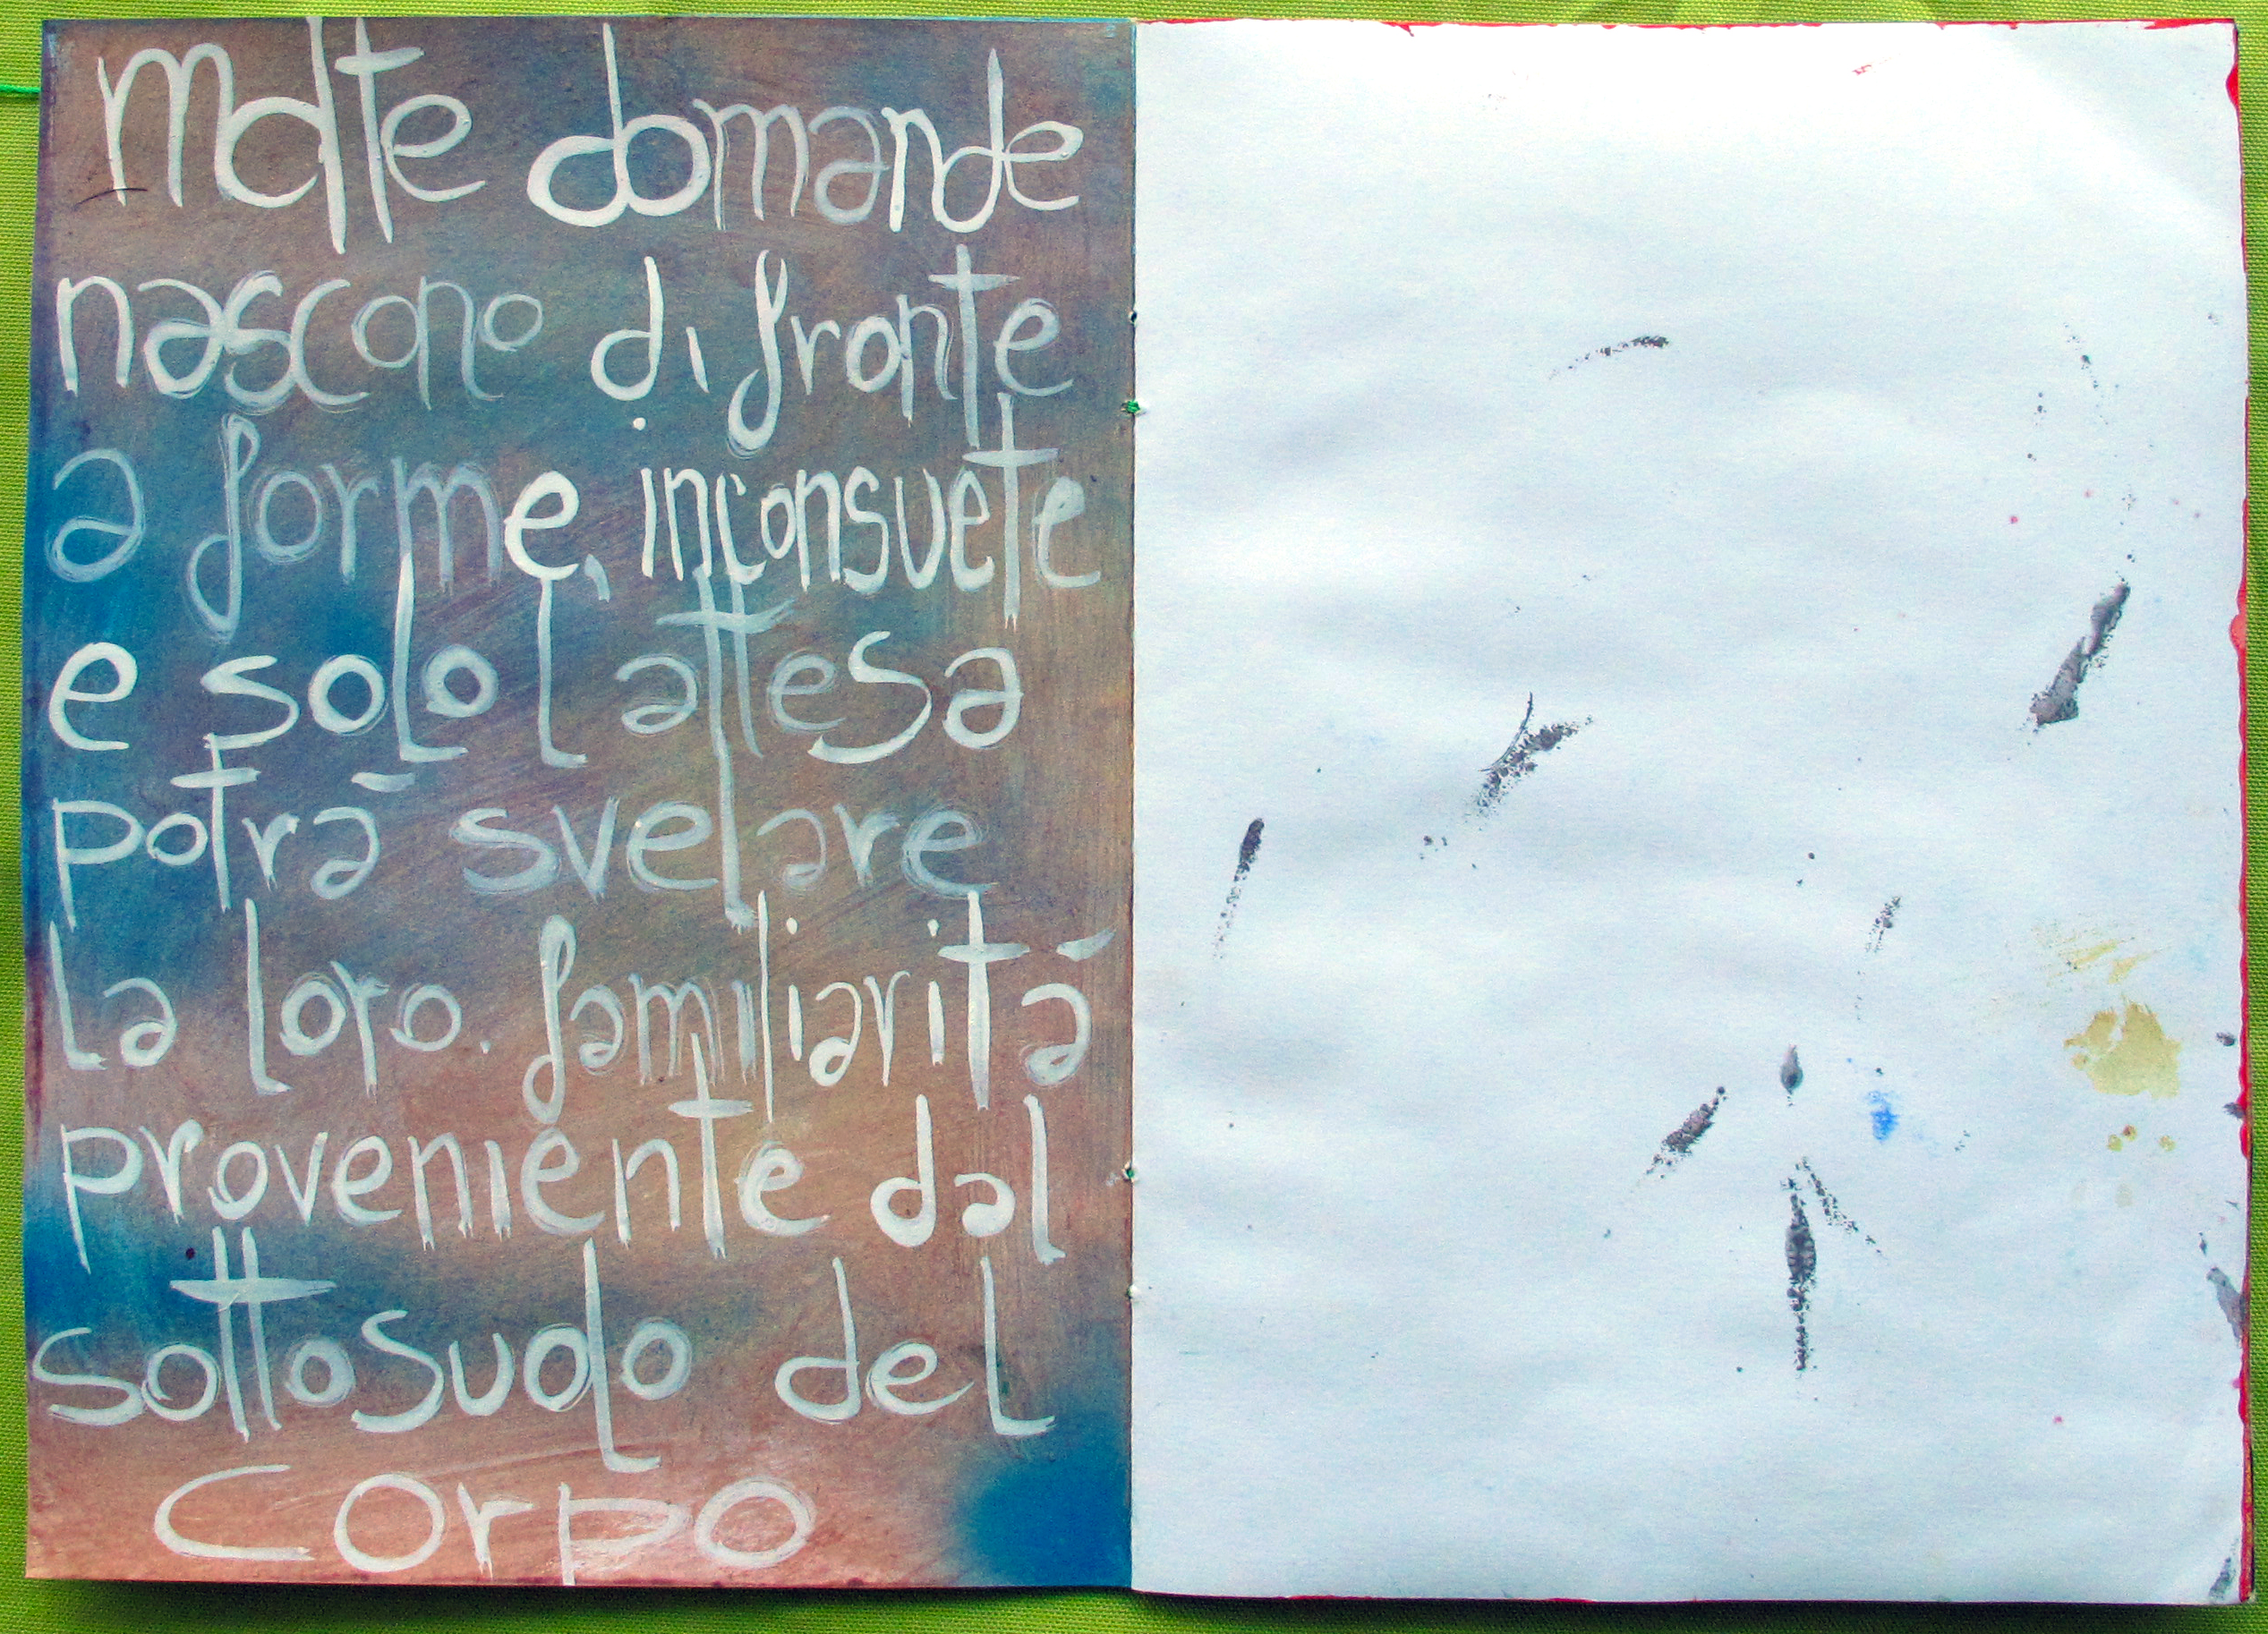 Molte domande
nascono di fronte
a forme, inconsuete
e solo l'attesa
potrà svelare
la loro. familiarità
proveniente dal
sottosuolo del
corpo